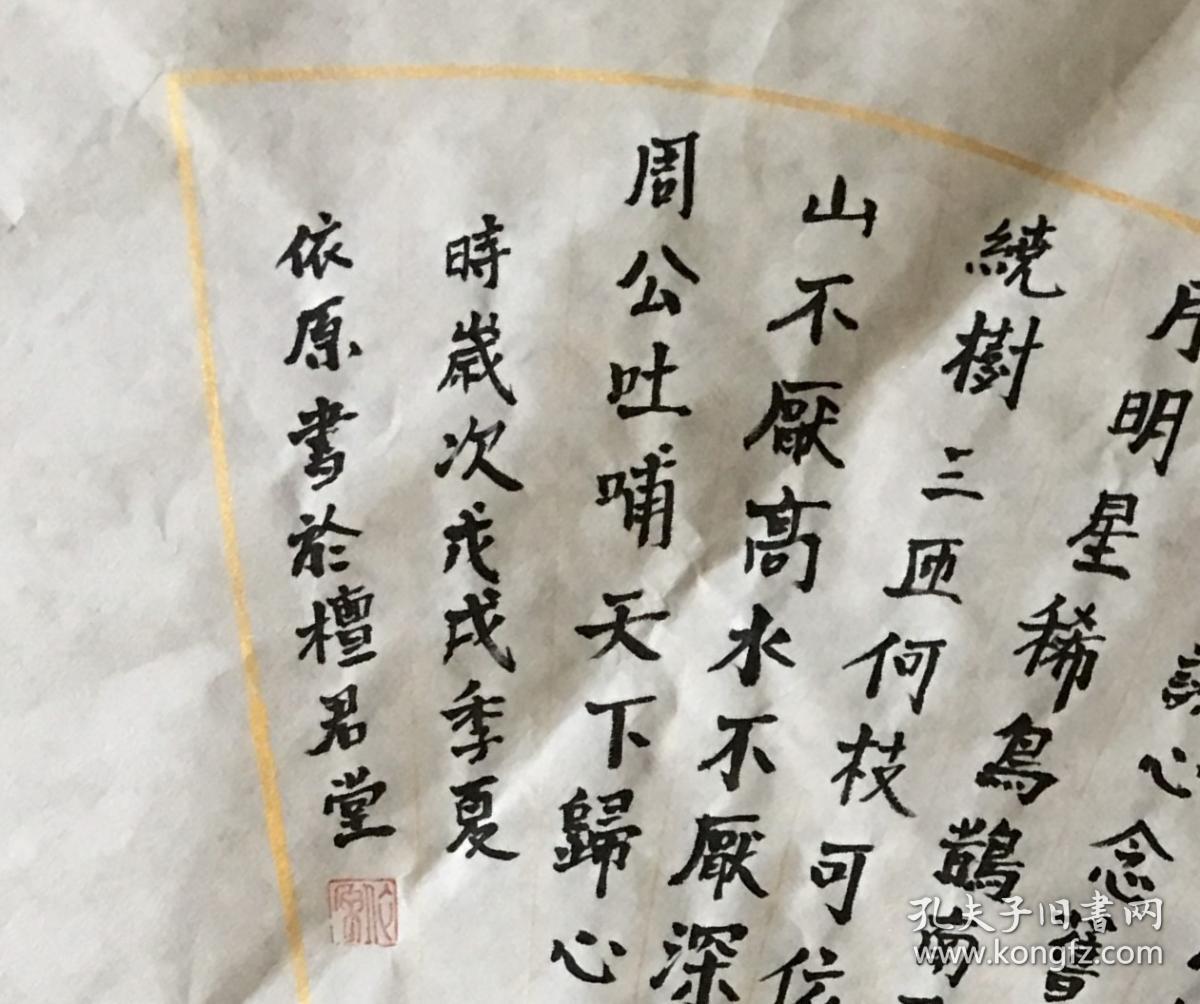 談心念舊
月明星稀烏鵲南
繞樹三匝何枝可依
山不厭高水不厭深
周公吐哺天下歸心
時歲次戊戌季夏
依原書於檀君堂
依原
孔夫子旧書网
www.kongfz.com